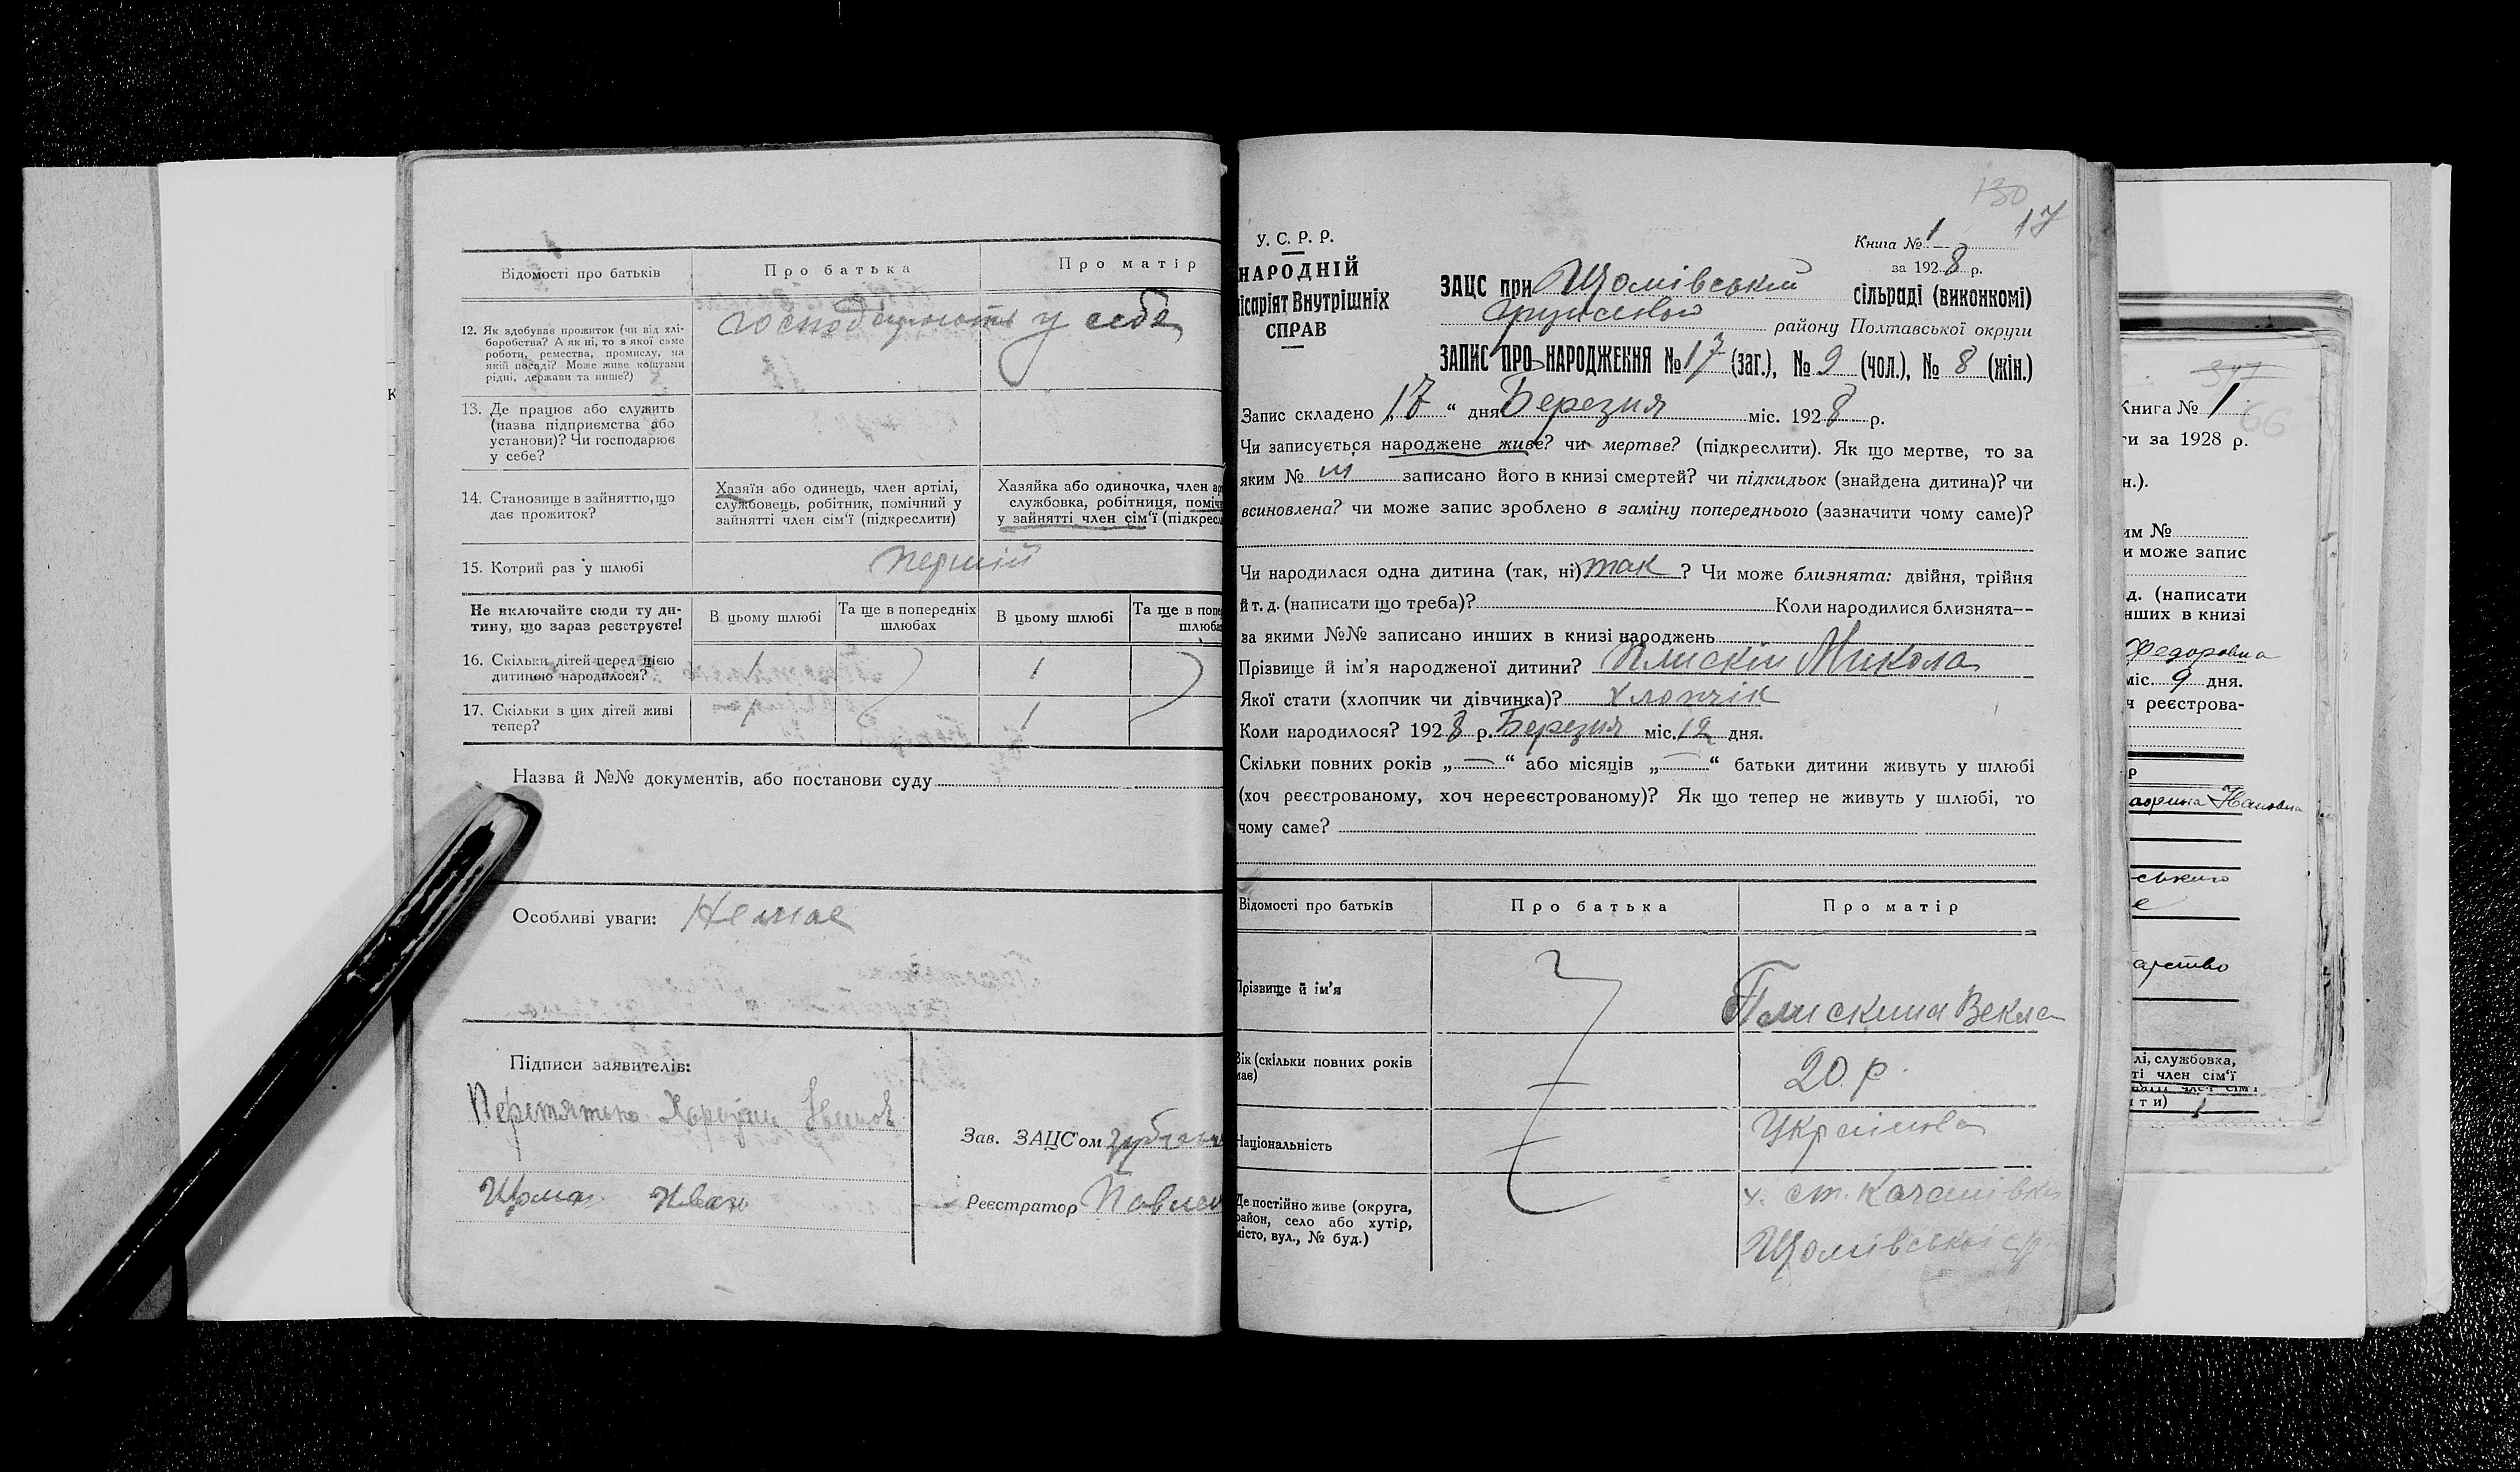 Відомості про батьків
Про батька
Про матір
12. Як здобуває прожиток (чи від хлі-
боробства? А як ні, то з якої саме
роботи, ремества, промислу, на
якій посаді? Може живе коштами
рідні, держави та инше?)
у себе
13. Де працює або служить
(назва підприємства або
установи)? Чи господарює
у себе?
14. Становище в зайняттю, що
дає прожиток?
Хазяїн або одинець, член артілі,
службовець, робітник, помічний у
зайнятті член сім'ї (підкреслити)
Хазяйка або одиночка, член
службовка, робітниця,
у зайнятті член сім'ї
15. Котрий раз у шлюбі
першій
Не включайте сюди ту ди-
тину, що зараз реєструєте!
В цьому шлюбі
Та ще в попередніх
шлюбах
В цьому шлюбі
Та ще в
16. Скільки дітей перед цією
дитиною народилося?
1
1
17. Скільки з цих дітей живі
тепер?
1
1
Назва й №№ документів, або постанови суду
Особливі уваги: Немає
Підписи заявителів:
Щома Иван
Зав. ЗАЦС'ом
Реєстратор
130
17
У. С. Р. Р.
НАРОДНІЙ
Внутрішніх
СПРАВ
Книга № 1
за 1928 р.
ЗАЦС при Щомівській сільраді (виконкомі)
району Полтавської округи
ЗАПИС ПРО НАРОДЖЕННЯ № 17 (заг.), № 9 (чол.), № 8 (жін.)
Запис складено „17“ дня Березня міс. 1928 р.
Чи записується народжене живе? чи мертве? (підкреслити). Як що мертве, то за
яким № записано його в книзі смертей? чи підкидьок (знайдена дитина)? чи
всиновлена? чи може запис зроблено в заміну попереднього (зазначити чому саме)?
Чи народилася одна дитина (так, ні) так? Чи може близнята: двійня, трійня
й т. д. (написати що треба)? Коли народилися близнята—
за якими №№ записано инших в книзі народжень
Прізвище й ім'я народженої дитини? Плискій Микола
Якої стати (хлопчик чи дівчинка)? хлопчік
Коли народилося? 1928 р. Березня міс. 12 дня.
Скільки повних років „—“ або місяців „—“ батьки дитини живуть у шлюбі
(хоч реєстрованому, хоч нереєстрованому)? Як що тепер не живуть у шлюбі, то
чому саме?
Відомості про батьків
Про батька
Про матір
Прізвище й ім'я
Плискина Векла
Вік (скільки повних років
має)
20 р.
Національність
Українка
Де постійно живе (округа,
район, село або хутір,
місто, вул., № буд.)
х. ст. Качанівка
Щомівської с/р
347
Книга № 1
66
за 1928 р.
№
и може запис
д. (написати
инших в книзі
Федоровна
міс. 9 дня.
реєстрова-
службовка,
член сім'ї